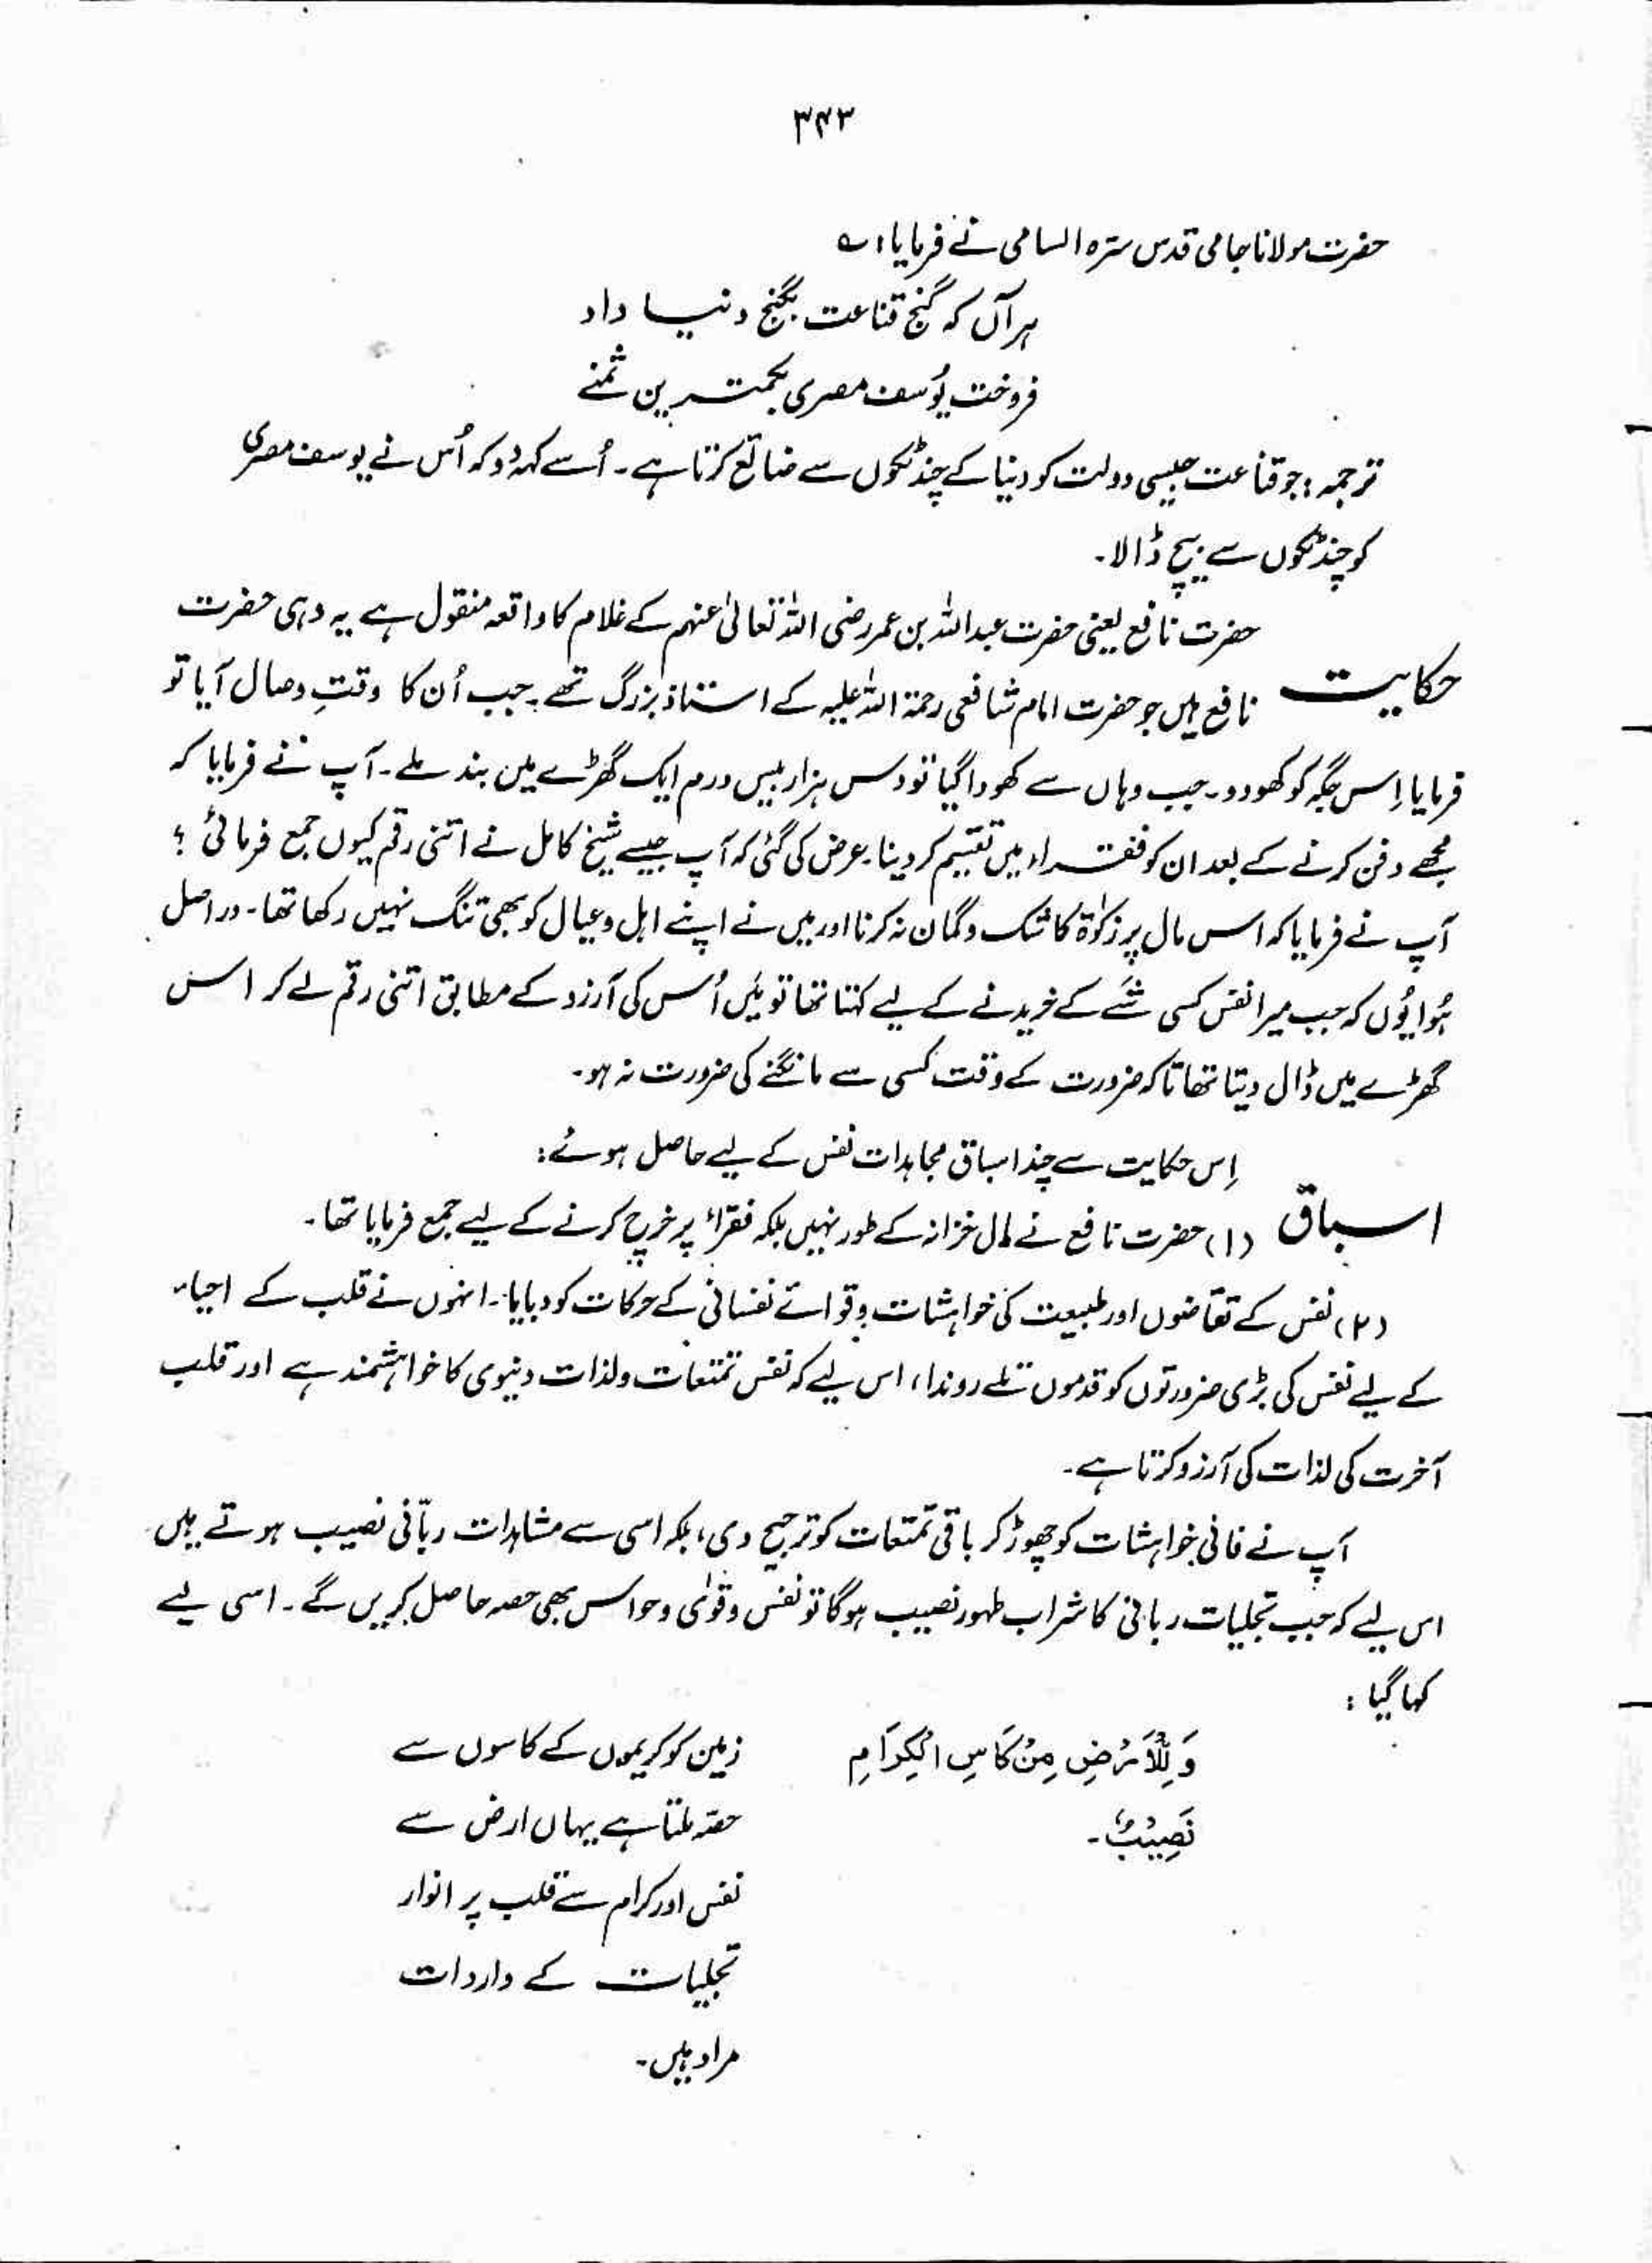 ۳۴۳
حضرت مولانا جامی قدس سترہ السامی نے فرمایا: ؎
ہر آں کہ گنج قناعت بگنج دنیا داد
فروخت یُوسف مصری بکمترین ثمنے
ترجمہ: جو قناعت جیسی دولت کو دنیا کے چند ٹکوں سے ضائع کرتا ہے۔ اُسے کہہ دو کہ اُس نے یوسف مصری
کو چند ٹکوں سے بیچ ڈالا۔
حضرت نافع یعنی حضرت عبداللہ بن عمر رضی اللہ تعالیٰ عنہم کے غلام کا واقعہ منقول ہے یہ وہی حضرت
حکایت نافع ہیں جو حضرت امام شافعی رحمۃ اللہ علیہ کے استاذ بزرگ تھے۔ جب اُن کا وقتِ وصال آیا تو
فرمایا اِس جگہ کو کھودو۔ جب وہاں سے کھودا گیا تو دس ہزار بیس درم ایک گھڑے میں بند ملے۔ آپ نے فرمایا کہ
مجھے دفن کرنے کے بعد ان کو فقراء میں تقسیم کر دینا۔ عرض کی گئی کہ آپ جیسے شیخ کامل نے اتنی رقم کیوں جمع فرمائی ؟
آپ نے فرمایا کہ اس مال پر زکوٰۃ کا شک و گمان نہ کرنا اور میں نے اپنے اہل و عیال کو بھی تنگ نہیں رکھا تھا۔ دراصل
ہُوا یُوں کہ جب میرا نفس کسی شَے کے خریدنے کے لیے کہتا تھا تو میَں اُس کی آرزو کے مطابق اتنی رقم لے کر اس
گھڑے میں ڈال دیتا تھا تاکہ ضرورت کے وقت کسی سے مانگنے کی ضرورت نہ ہو۔
اِس حکایت سے چند اسباق مجاہدات نفس کے لیے حاصل ہوئے:
اسباق (۱) حضرت نافع نے مال خزانہ کے طور نہیں بلکہ فقراء پر خرچ کرنے کے لیے جمع فرمایا تھا۔
(۲) نفس کے تقاضوں اور طبیعت کی خواہشات و قوائے نفسانی کے حرکات کو دبایا۔ انہوں نے قلب کے احیاء
کے لیے نفس کی بڑی ضرورتوں کو قدموں تلے روندا، اس لیے کہ نفس تمتعات و لذات دنیوی کا خواہشمند ہے اور قلب
آخرت کی لذات کی آرزو کرتا ہے۔
آپ نے فانی خواہشات کو چھوڑ کر باقی تمتعات کو ترجیح دی، بلکہ اسی سے مشاہدات ربّانی نصیب ہوتے ہیں
اس لیے کہ جب تجلیات ربانی کا شراب طہور نصیب ہوگا تو نفس و قوٰی و حواس بھی حصہ حاصل کریں گے۔ اسی لیے
کہا گیا :
وَلِلْاَرْضِ مِنْ کَاسِ الْکِرَامِ
نَصِیْبٌ۔
زمین کو کریموں کے کاسوں سے
حصّہ ملتا ہے یہاں ارض سے
نفس اور کرام سے قلب پر انوار
تجلیات کے واردات
مراد ہیں۔